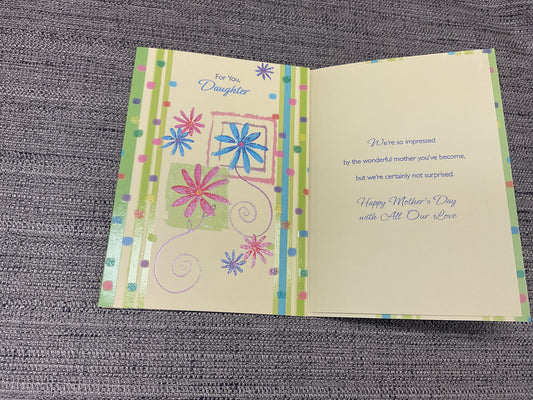 For You,
Daughter
We're so impressed
by the wonderful mother you've become,
but we're certainly not surprised.
Happy Mother's Day
with All Our Love